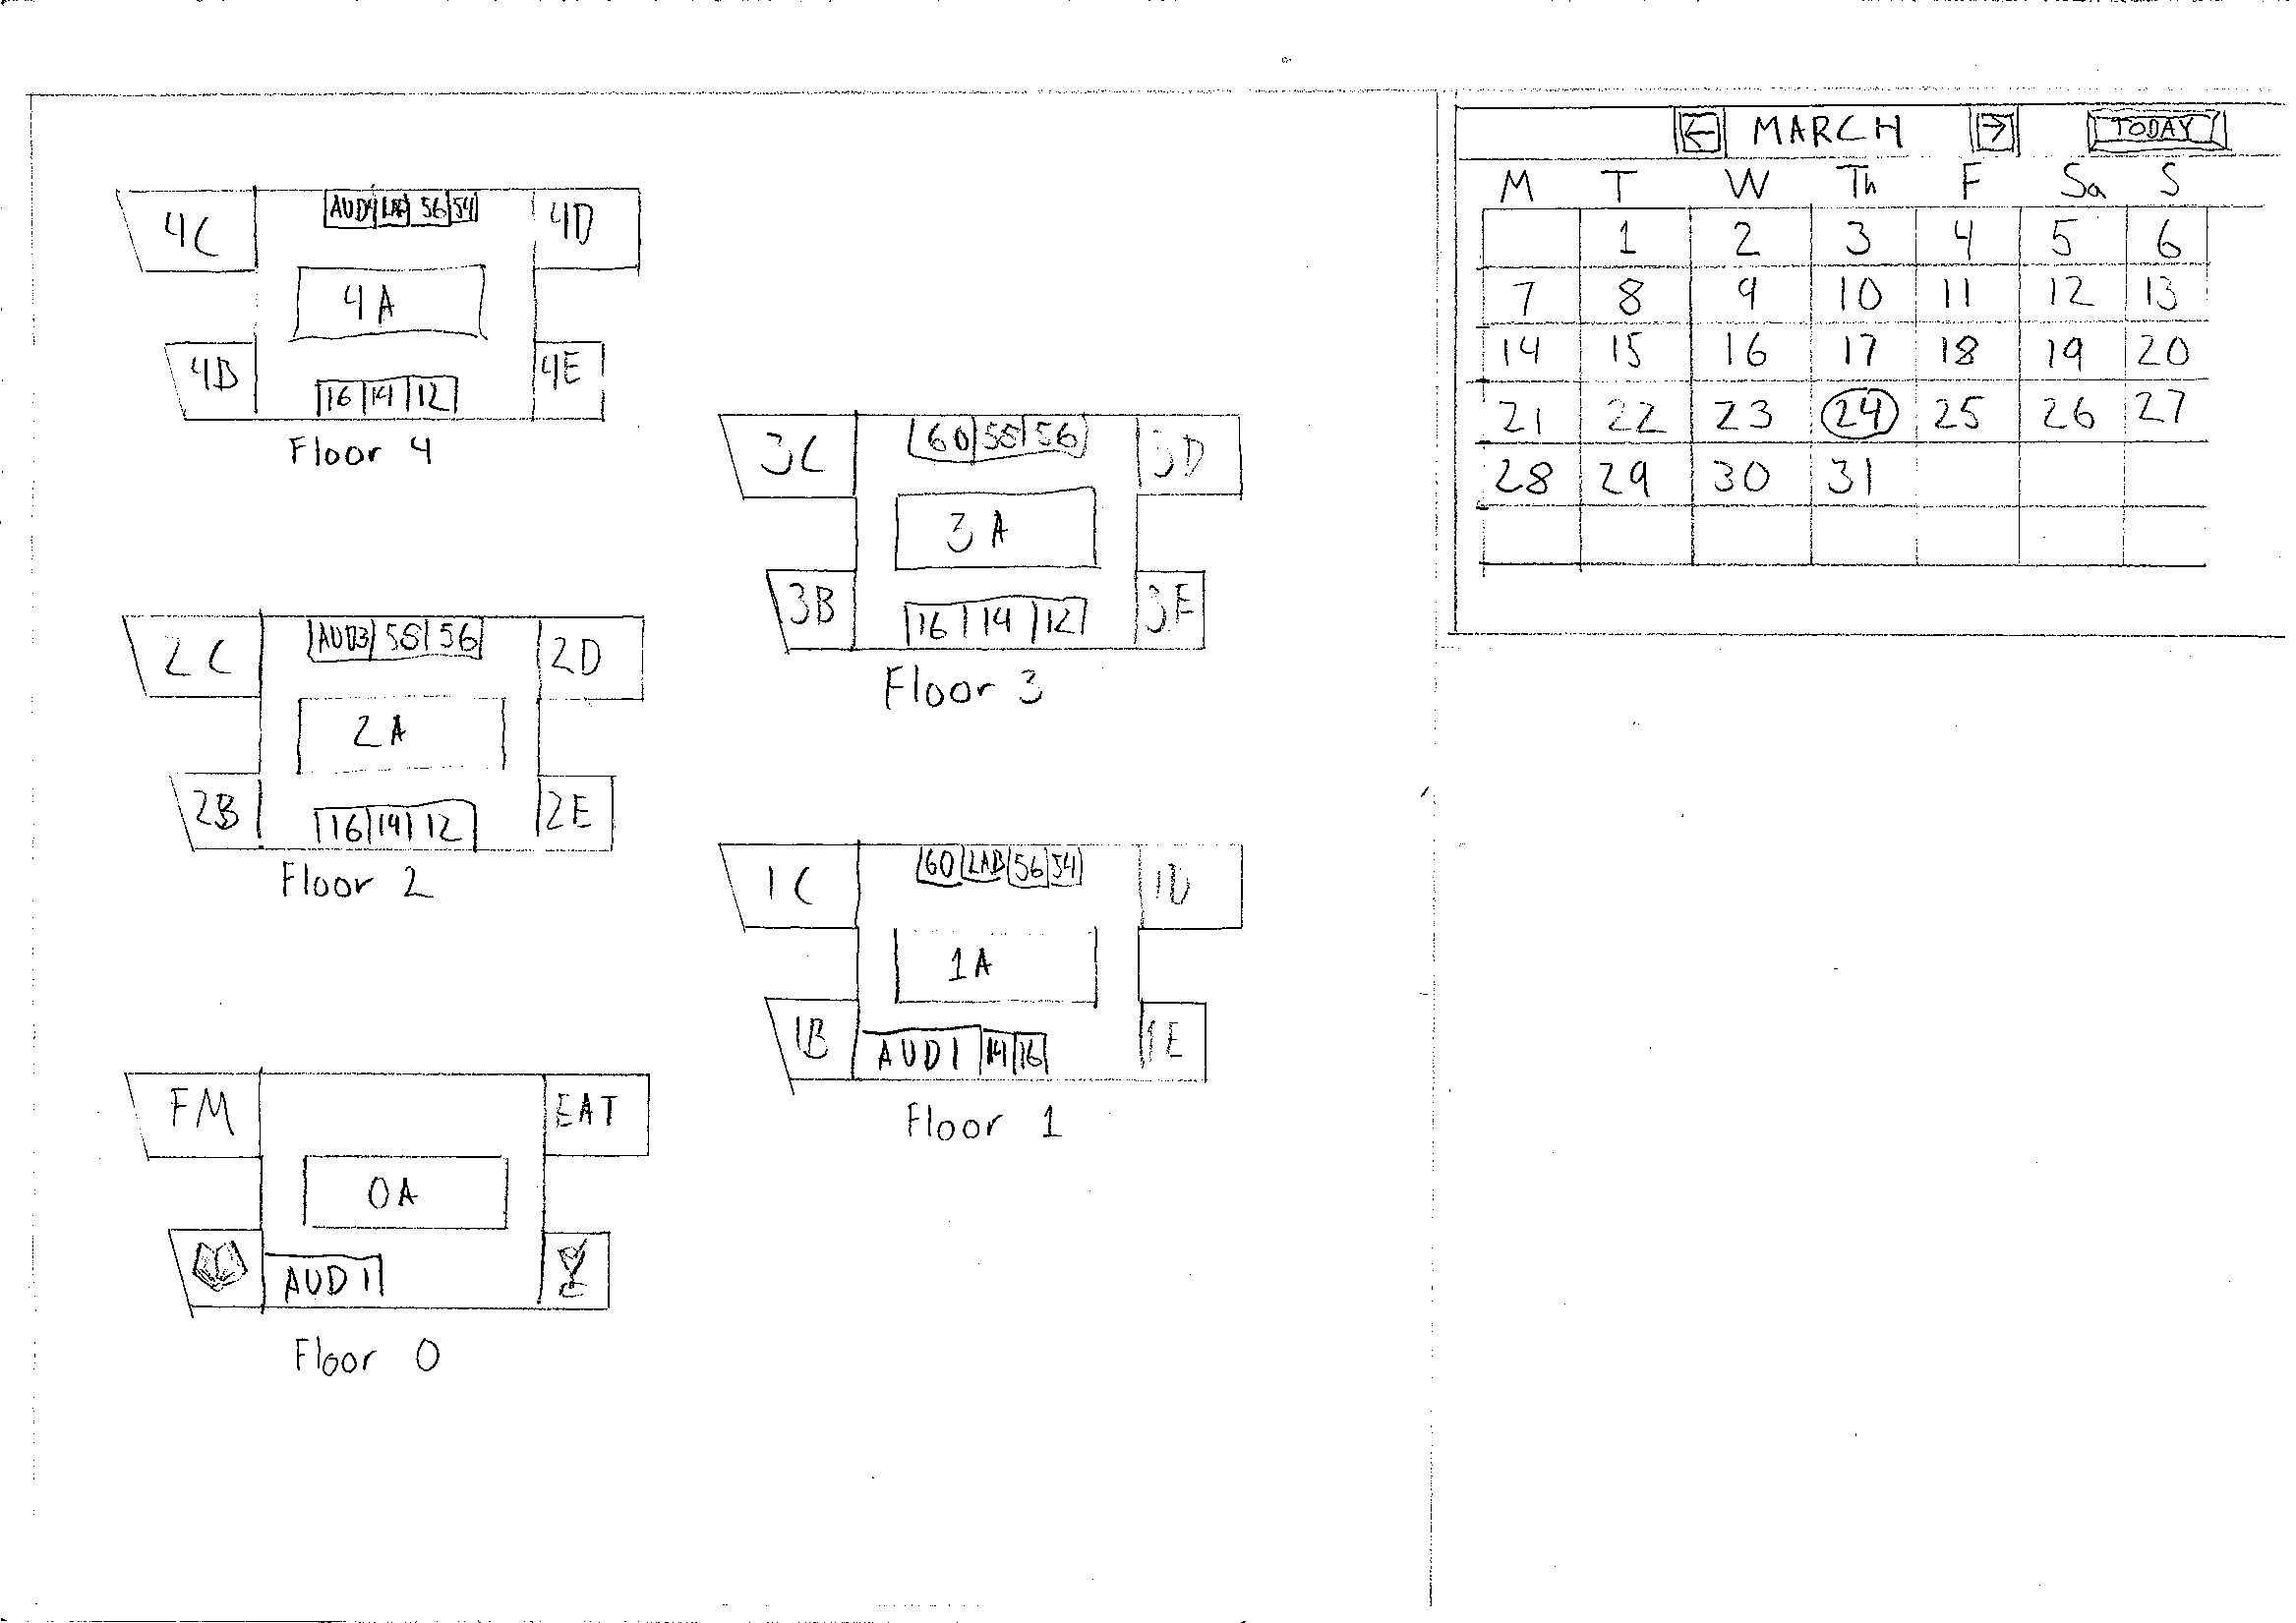 4C AUD4 LAB 56 54 4D
4A
4B 16 14 12 4E
Floor 4
3C 60 58 56 3D
3A
3B 16 14 12 3E
Floor 3
2C AUD3 58 56 2D
2A
2B 16 14 12 2E
Floor 2
1C 60 LAB 56 54 1D
1A
1B AUD1 14 16 1E
Floor 1
FM EAT
0A
AUD1
Floor 0
← MARCH → TODAY
M T W Th F Sa S
1 2 3 4 5 6
7 8 9 10 11 12 13
14 15 16 17 18 19 20
21 22 23 24 25 26 27
28 29 30 31